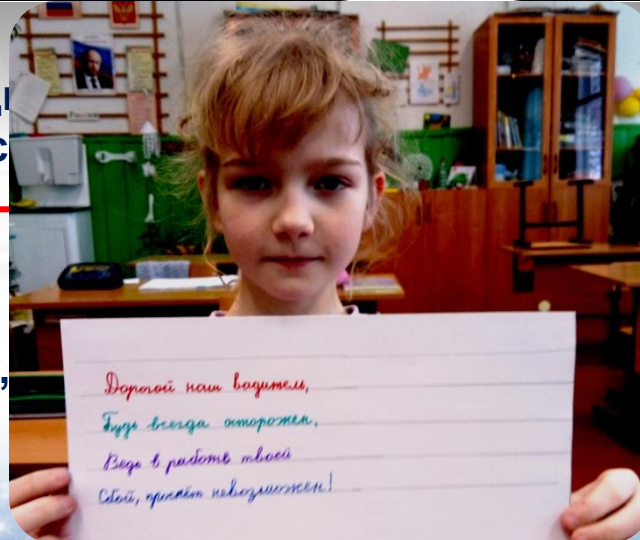 Россия
Дорогой наш водитель,
Будь всегда осторожен,
Ведь в работе твоей
Сбой, просчёт невозможен!